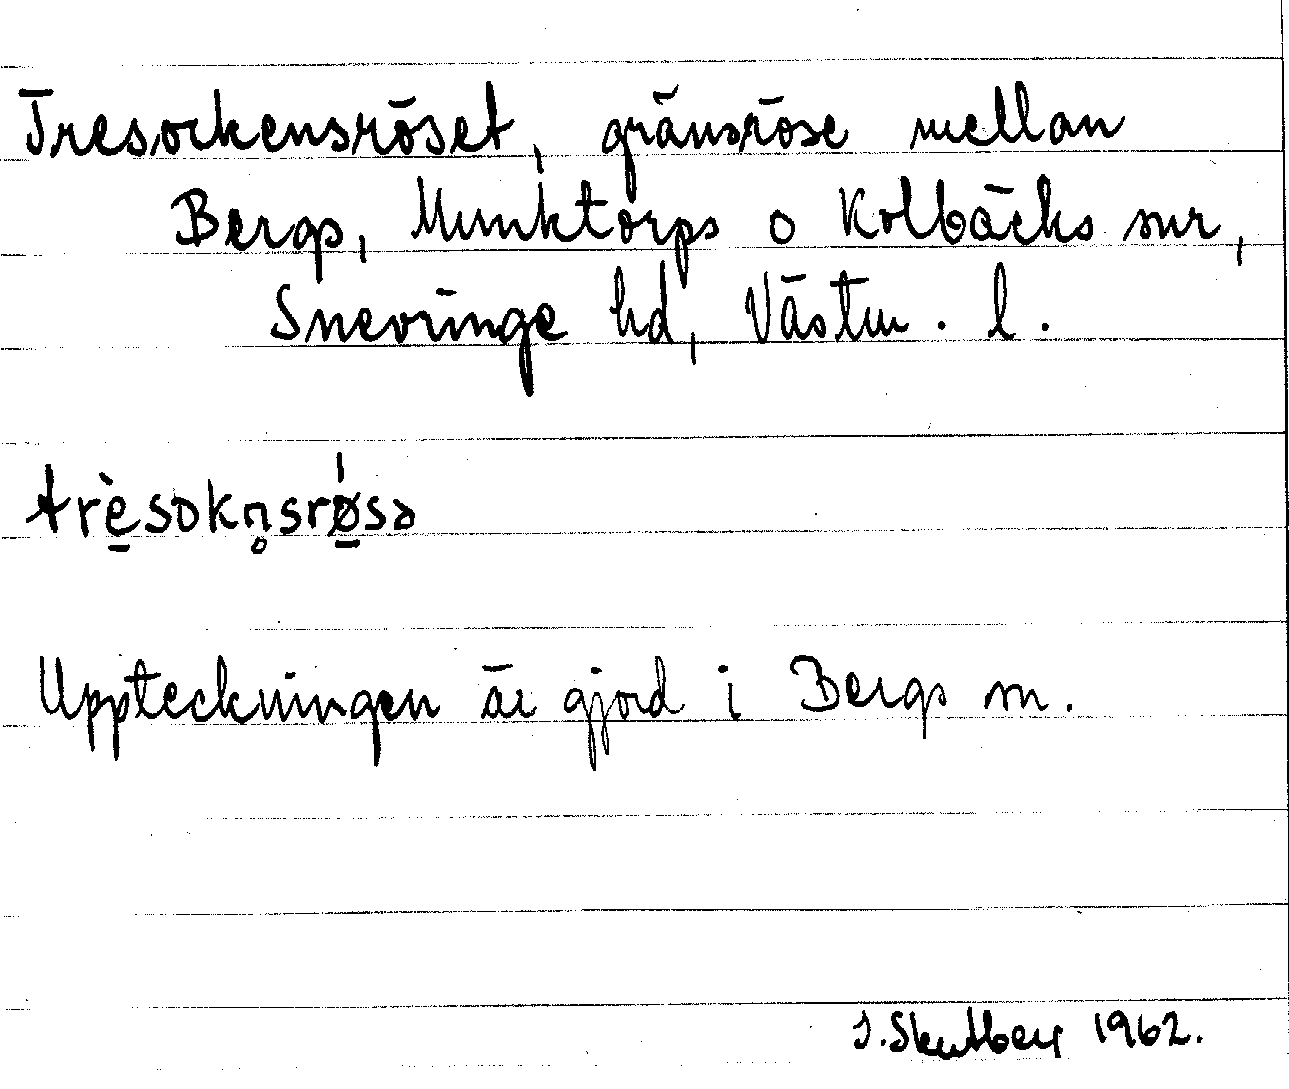 Tresockensröset, gränsröse mellan
Bergs, Munktorps o Kolbäcks snr,
Snevringe hd, Västm. l.
trèsokn̥srø̱sə
Uppteckningen är gjord i Bergs sn.
1962.